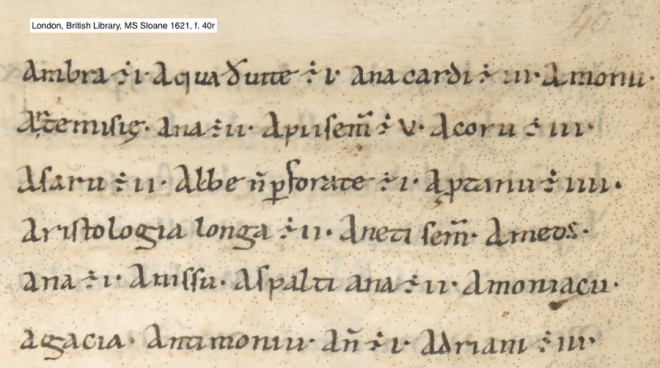 London, British Library, MS Sloane 1621, f. 40r
Ambra ʒ i· Aqua ꝺutte ʒ i· anacardi ʒ iii· Amoniu·
Artemisię· ana ʒ ii· Apii sem̄ ʒ v· Acoru ʒ iii·
Asaru ʒ ii· Albe n̄ ꝑforate ʒ i· ʒ iiii·
Aristologia longa ʒ ii· Aneti sem̄· Ameos·
ana ʒ i· Anissu· Aspalti ana ʒ ii· Amoniacu·
agacia· Antimoniu· An̄ ʒ i· Adriani ʒ iii·